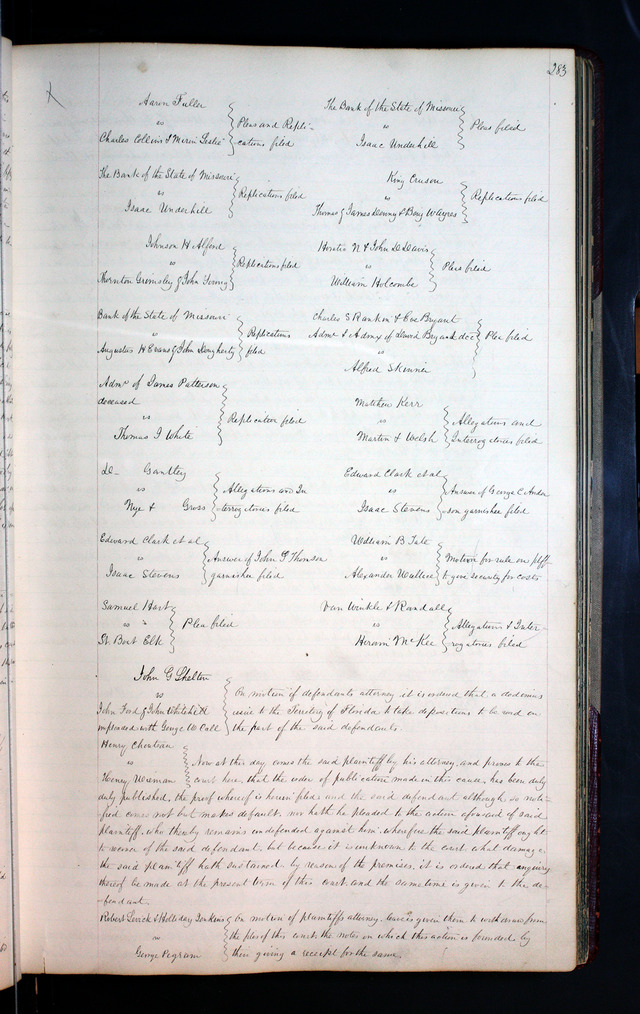 283
Aaron Fuller
vs
Charles Collins & Merin Leslie
Pleas and Repli-
cations filed
The Bank of the State of Missouri
vs
Isaac Underhill
Pleas filed
The Bank of the State of Missouri
vs
Isaac Underhill
Replications filed
King Cruson
vs
Thomas & James Denny & Benj W Ayres
Replications filed
Johnson H Alford
vs
Thornton Grimsley & John Young
Replications filed
Horatio N & John D Davis
vs
William Holcombe
Pleas filed
Bank of the State of Missouri
vs
Augustus H Evans & John Dougherty
Replications
filed
Charles S Rankin & Bryant
Admr & Admx of Bryant decd
vs
Alfred Skinner
Plea filed
Admr of James Patterson
deceased
vs
Thomas J White
Replication filed
Matthew Kerr
vs
Martin & Welsh
Allegations and
Interrogatories filed
De- Gantley
vs
Nye & Gross
Allegations and In
terrogatories filed
Edward Clark et al
vs
Isaac Stevens
Answer of George C Ander
son garnishee filed
Edward Clark et al
vs
Isaac Stevens
Answer of John S Thomson
garnishee filed
William B Tate
vs
Alexander Wallace
Motion for rule on plff
to give security for costs
Samuel Hart
vs
St Boat Elk
Plea filed
Van Winkle & Randall
vs
Hiram McKee
Allegations & Inter-
rogatories filed
John G Shelton
vs
John Ford & John Whitehill
impleaded with George W Call
On motion of defendants attorney it is ordered that a dedimus
issue to the Secretary of Florida to take depositions to be read on
the part of the said defendants.
Henry Chouteau
vs
Wiseman
Now at this day comes the said plaintiff by his attorney, and proves to the
court here, that the order of publication made in this cause, has been duly
duly published, the proof whereof is herein filed and the said defendant although so noti-
fied comes not but makes default, nor hath he pleaded to the action aforesaid of said
plaintiff, who thereby remains undefended against him, wherefore the said plaintiff ought
to recover of the said defendant, but because it is unknown to the court what damage
the said plaintiff hath sustained by reason of the premises, it is ordered that enquiry
thereof be made at the present term of this court, and the same time is given to the de-
fendant.
Robert Levick & Holliday Jenkins
vs
George Pegram
On motion of plaintiffs attorney, leave is given them to withdraw from
the files of this court the notes on which this action is founded by
their giving a receipt for the same.